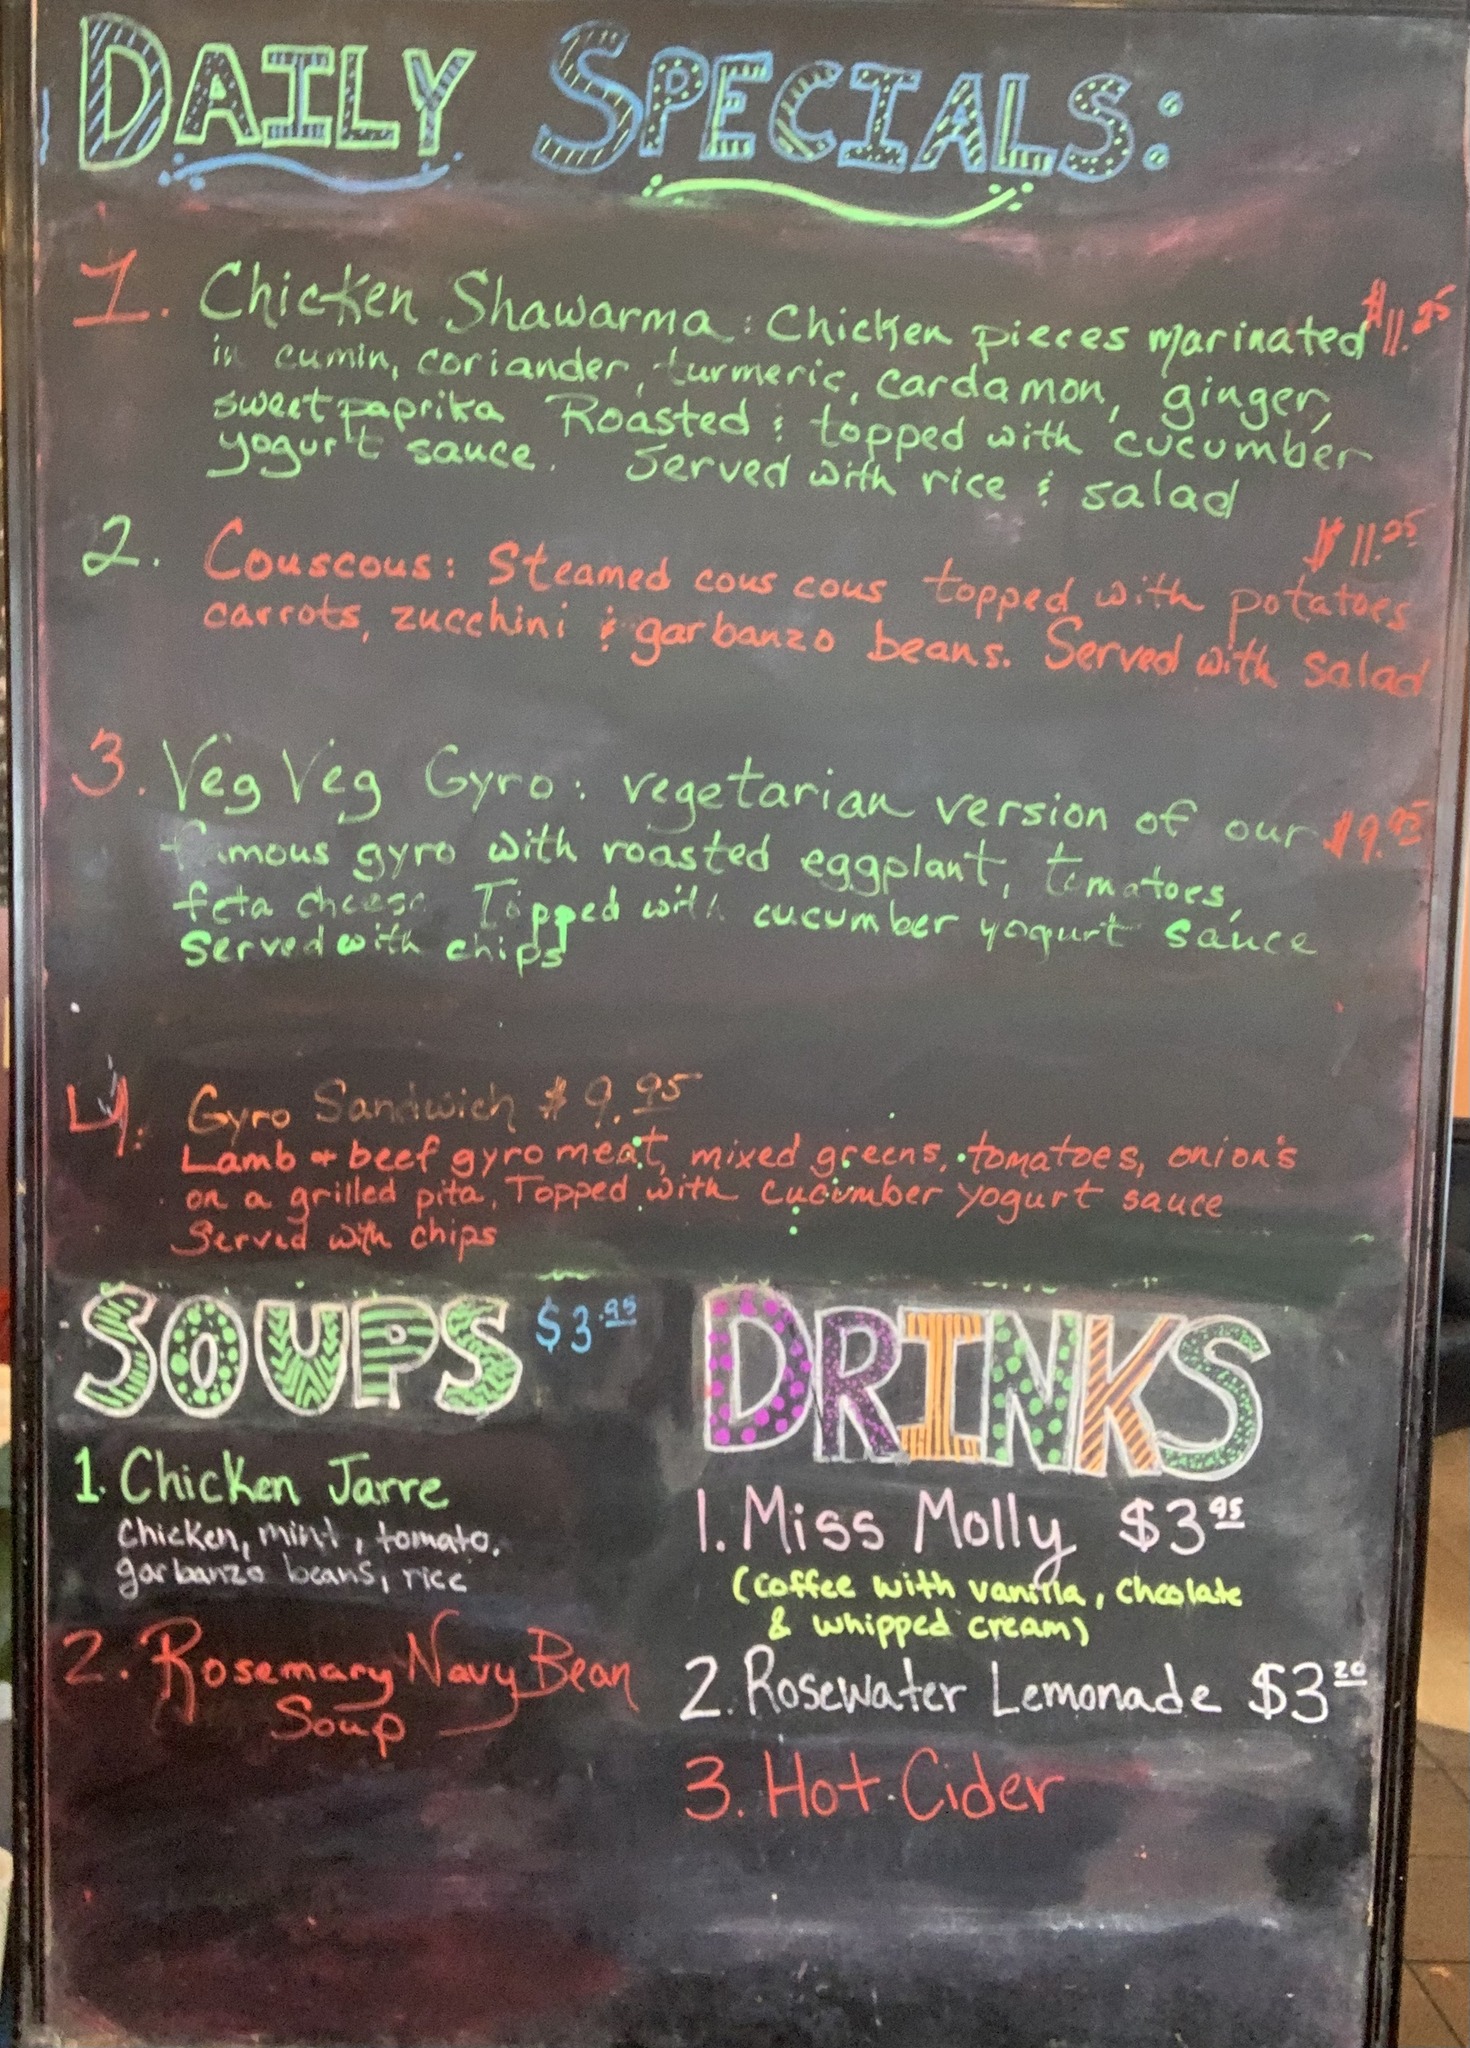 DAILY SPECIALS:
1. Chicken Shawarma: Chicken pieces marinated $11.25
in cumin, coriander, turmeric, cardamon, ginger,
sweet paprika Roasted & topped with cucumber
yogurt sauce. Served with rice & salad
$11.25
2. Couscous: Steamed cous cous topped with potatoes
carrots, zucchini & garbanzo beans. Served with salad
3. Veg Veg Gyro: vegetarian version of our $9.95
famous gyro with roasted eggplant, tomatoes,
feta cheese Topped with cucumber yogurt sauce
Served with chips
4. Gyro Sandwich $9.95
Lamb & beef gyro meat, mixed greens, tomatoes, onion's
on a grilled pita, Topped with cucumber yogurt sauce
Served with chips
SOUPS $3.95
1. Chicken Jarre
Chicken, mint, tomato,
garbanzo beans, rice
2. Rosemary Navy Bean
Soup
DRINKS
1. Miss Molly $3 95
(coffee with vanilla, choclate
& whipped cream)
2. Rosewater Lemonade $3 20
3. Hot Cider